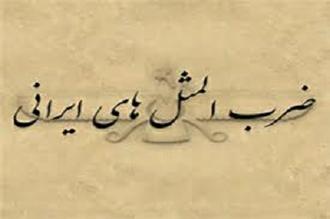 ضرب المثل های ایرانی